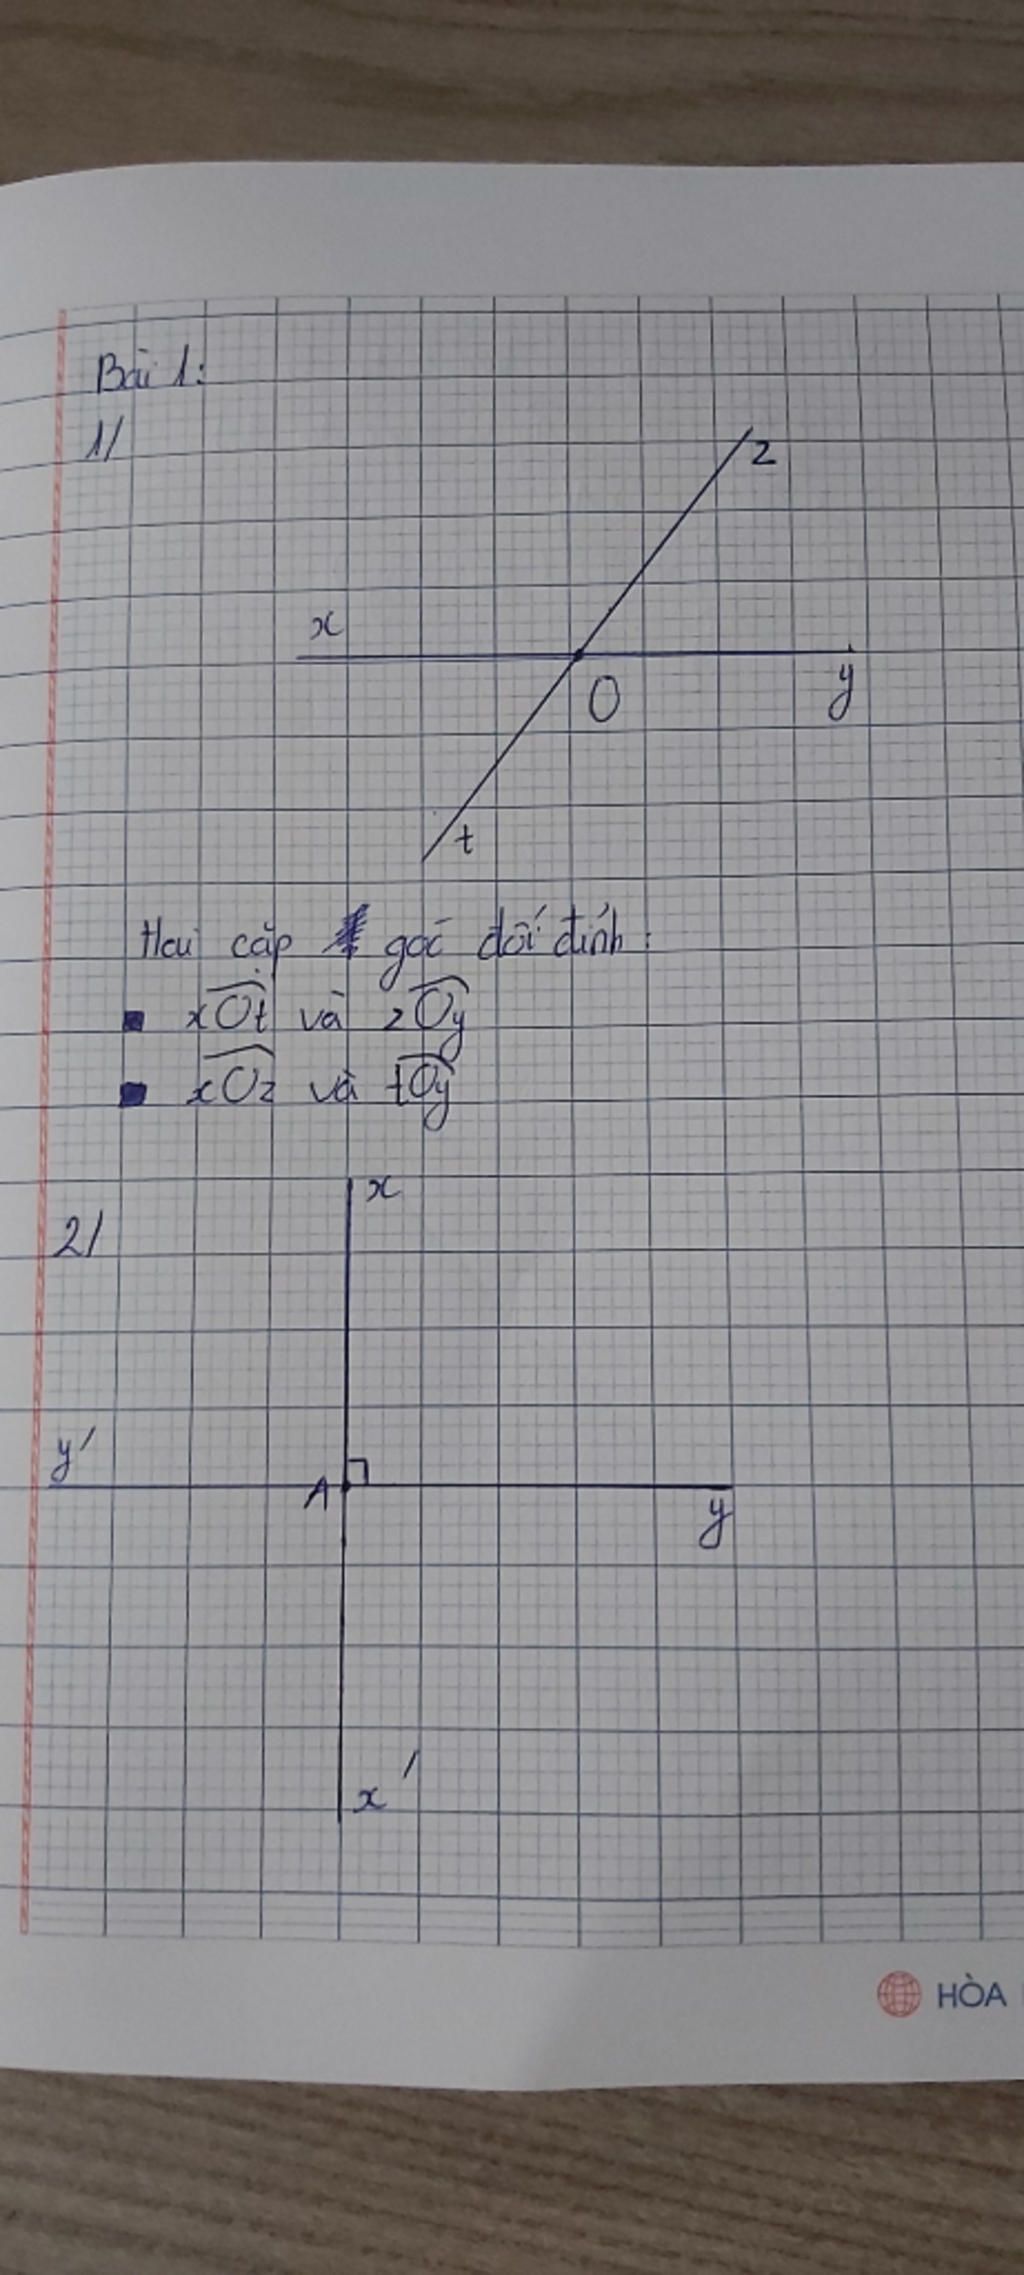 Bài 1:
1/
z
x
O
y
t
Hai cặp góc đối đỉnh:
xOt và zOy
xOz và tOy
x
2/
y'
A
y
x'
HÒA